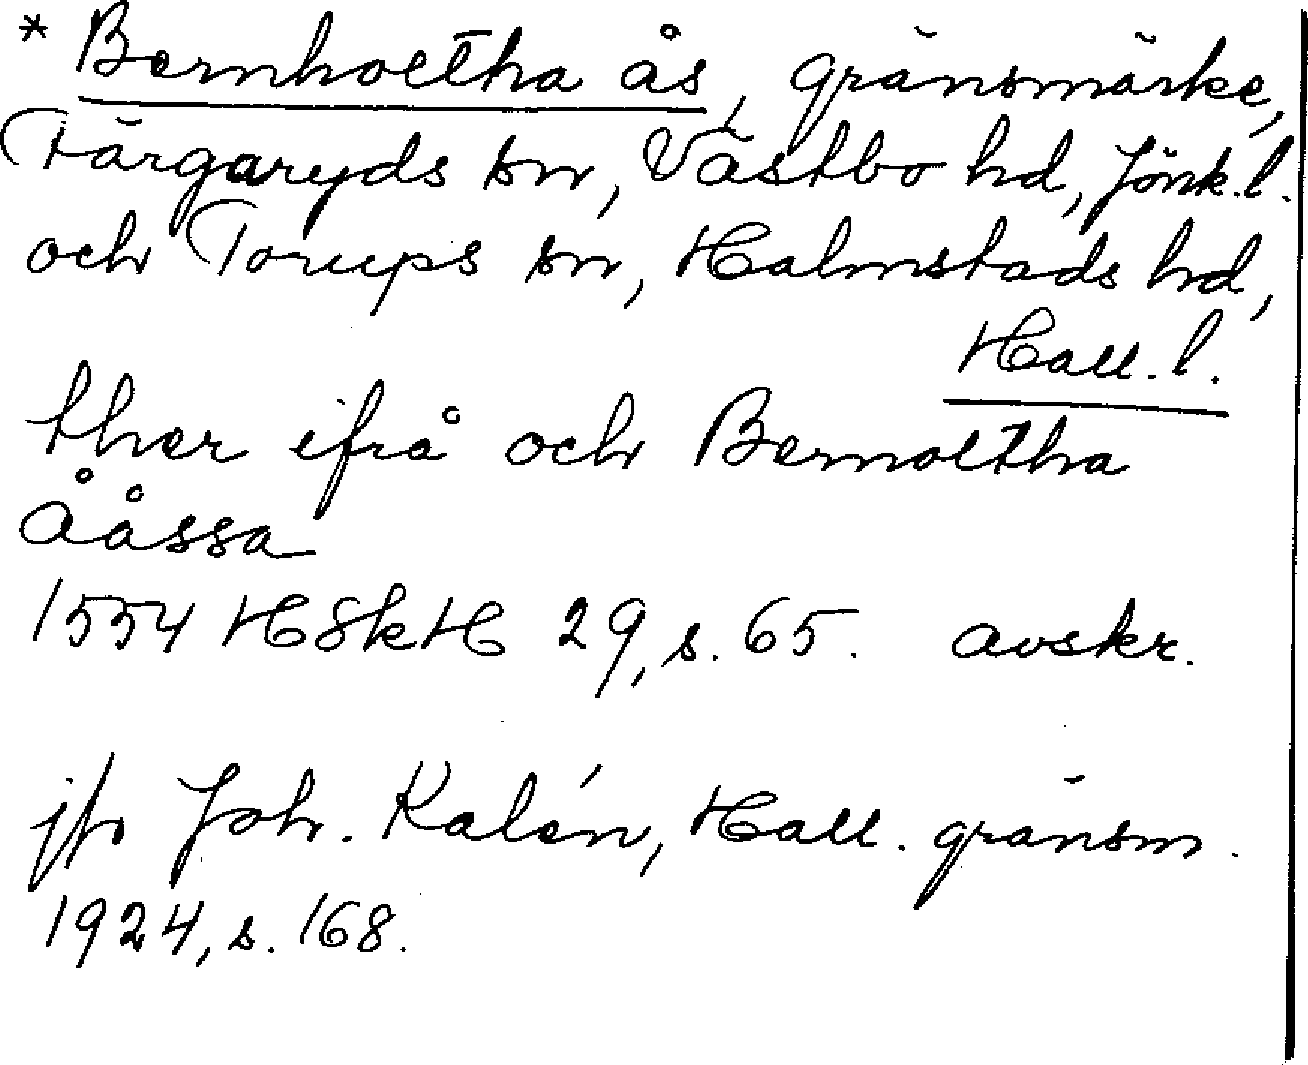 * Bernholtha ås, gränsmärke,
Färgaryds sn, Västbo hd, Jönk.l.
och Torups sn, Halmstads hd,
Hall.l.
ther ifrå och Bernoltha
ååssa
1554 HSkH 29, s. 65. avskr.
jfr Joh. Kalén, Hall. gränsm.
1924, s. 168.